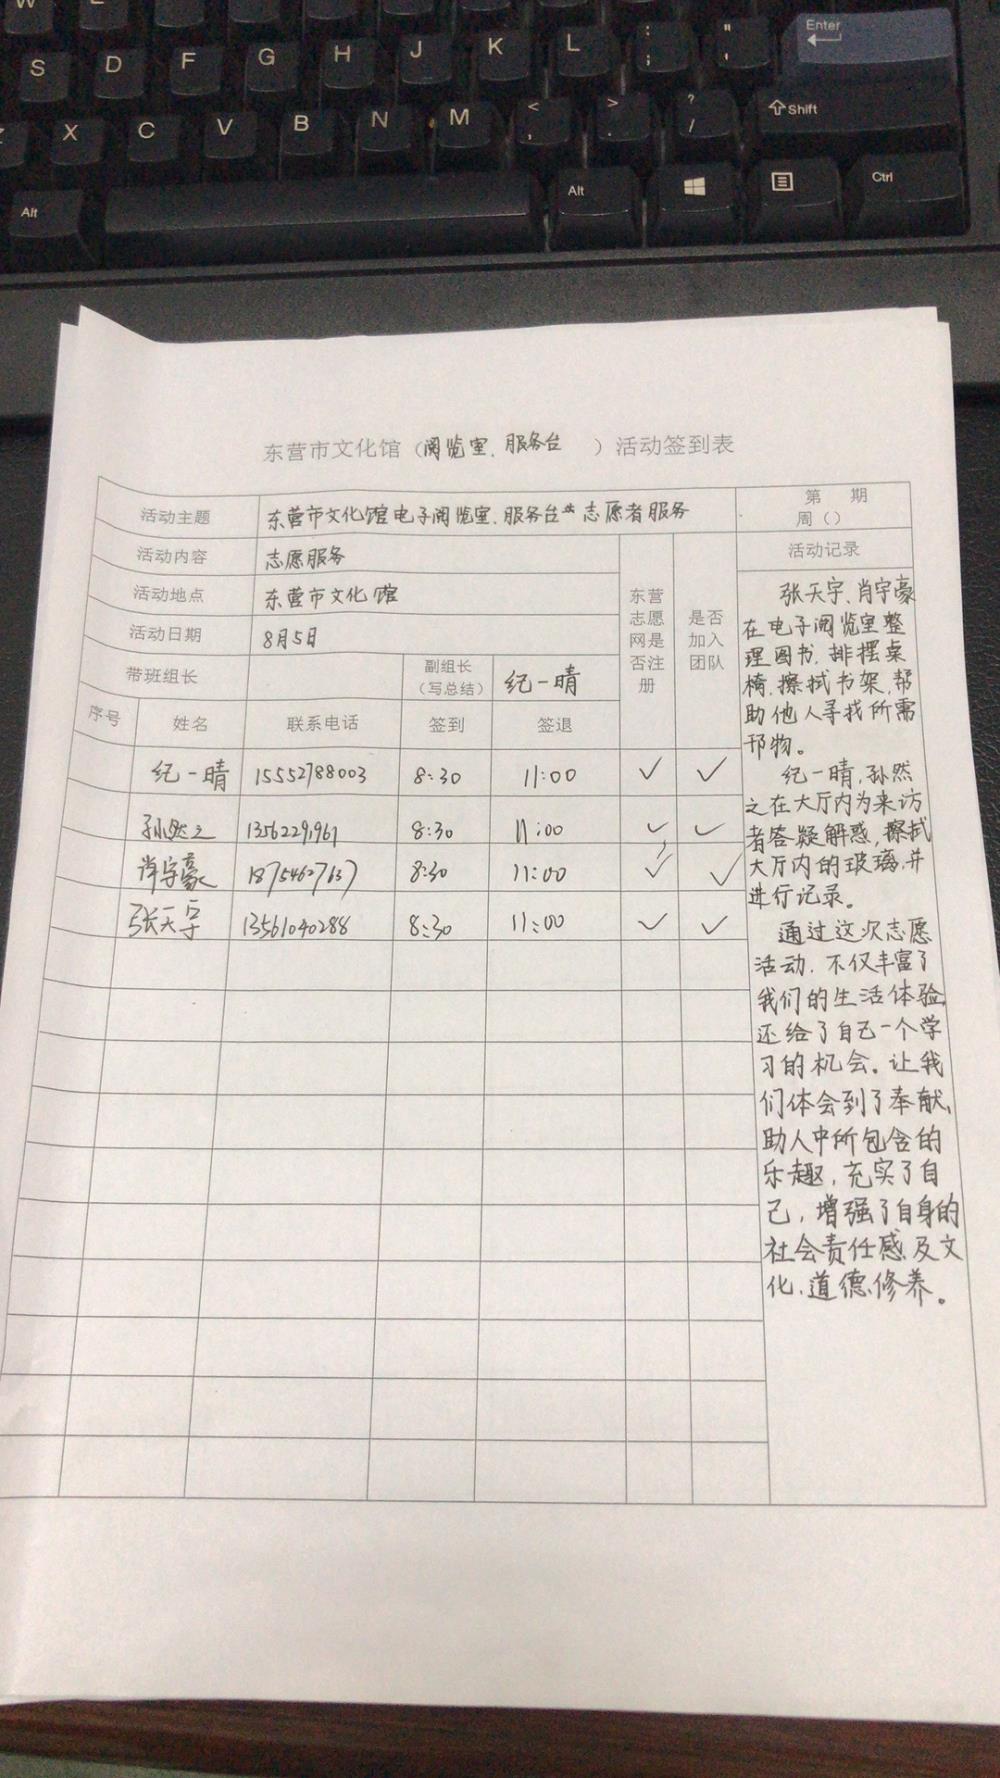 W
S D F G H J K L : ; " ' Enter
X C V B N M < , > . ? / Shift
Alt Alt Ctrl
东营市文化馆（阅览室、服务台）活动签到表
活动主题 东营市文化馆电子阅览室、服务台 志愿者服务 第 期
周（）
活动内容 志愿服务 活动记录
活动地点 东营市文化馆
活动日期 8月5日
东营
志愿
网是
否注
册
是否
加入
团队
带班组长 副组长
（写总结） 纪一晴
序号 姓名 联系电话 签到 签退
纪一晴 15552788003 8:30 11:00 ✓ ✓
孙然之 8:30 11:00 ✓ ✓
肖宇豪 18754627637 8:30 11:00 ✓ ✓
张天宇 13561040288 8:30 11:00 ✓ ✓
张天宇、肖宇豪
在电子阅览室整
理图书、排摆桌
椅、擦拭书架,帮
助他人寻找所需
书物。
纪一晴,孙然
之在大厅内为来访
者答疑解惑,擦拭
大厅内的玻璃,并
进行记录。
通过这次志愿
活动,不仅丰富了
我们的生活体验,
还给了自己一个学
习的机会。让我
们体会到了奉献、
助人中所包含的
乐趣,充实了自
己,增强了自身的
社会责任感及文
化、道德修养。